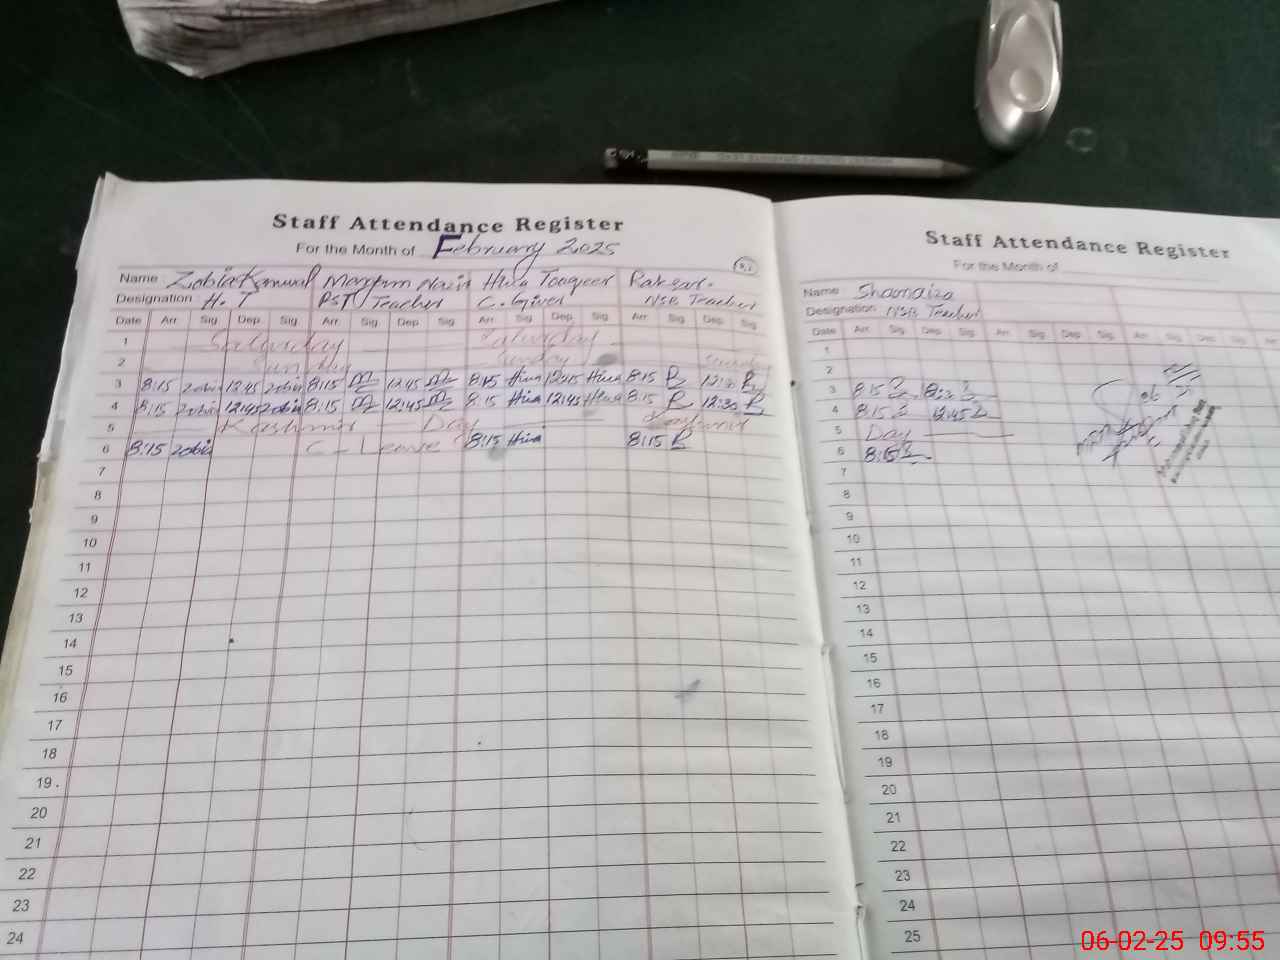 Staff Attendance Register
For the Month of February 2025
Name Zobia Kanwal Maryam Nazir Hira Touqeer
Designation H.T PST Teacher C. Giver NSB Teacher
Date Arr Sig Dep Sig Arr Sig Dep Sig Arr Sig Dep Sig Arr Sig Dep Sig
1 Saturday Saturday
2 Sunday Sunday Sunday
3 8:15 zobia 12:45 zobia 8:15 12:45 8:15 Hira 12:45 Hira 8:15 R 12:30 R
4 8:15 zobia 12:45 zobia 8:15 12:45 8:15 Hira 12:45 Hira 8:15 R 12:30 R
5 Kashmir Day Kashmir
6 8:15 zobia C- Leave 8:15 Hira 8:15 R
7
8
9
10
11
12
13
14
15
16
17
18
19
20
21
22
23
24
Staff Attendance Register
For the Month of
Name Shamaiza
Designation NSB Teacher
Date Arr Sig Dep Sig Arr Sig Dep Sig Arr Sig Dep Sig Arr
1
2
3 8:15 12:30
4 8:15 12:45
5 Day
6 8:15
7
8
9
10
11
12
13
14
15
16
17
18
19
20
21
22
23
24
25
06-02-25 09:55